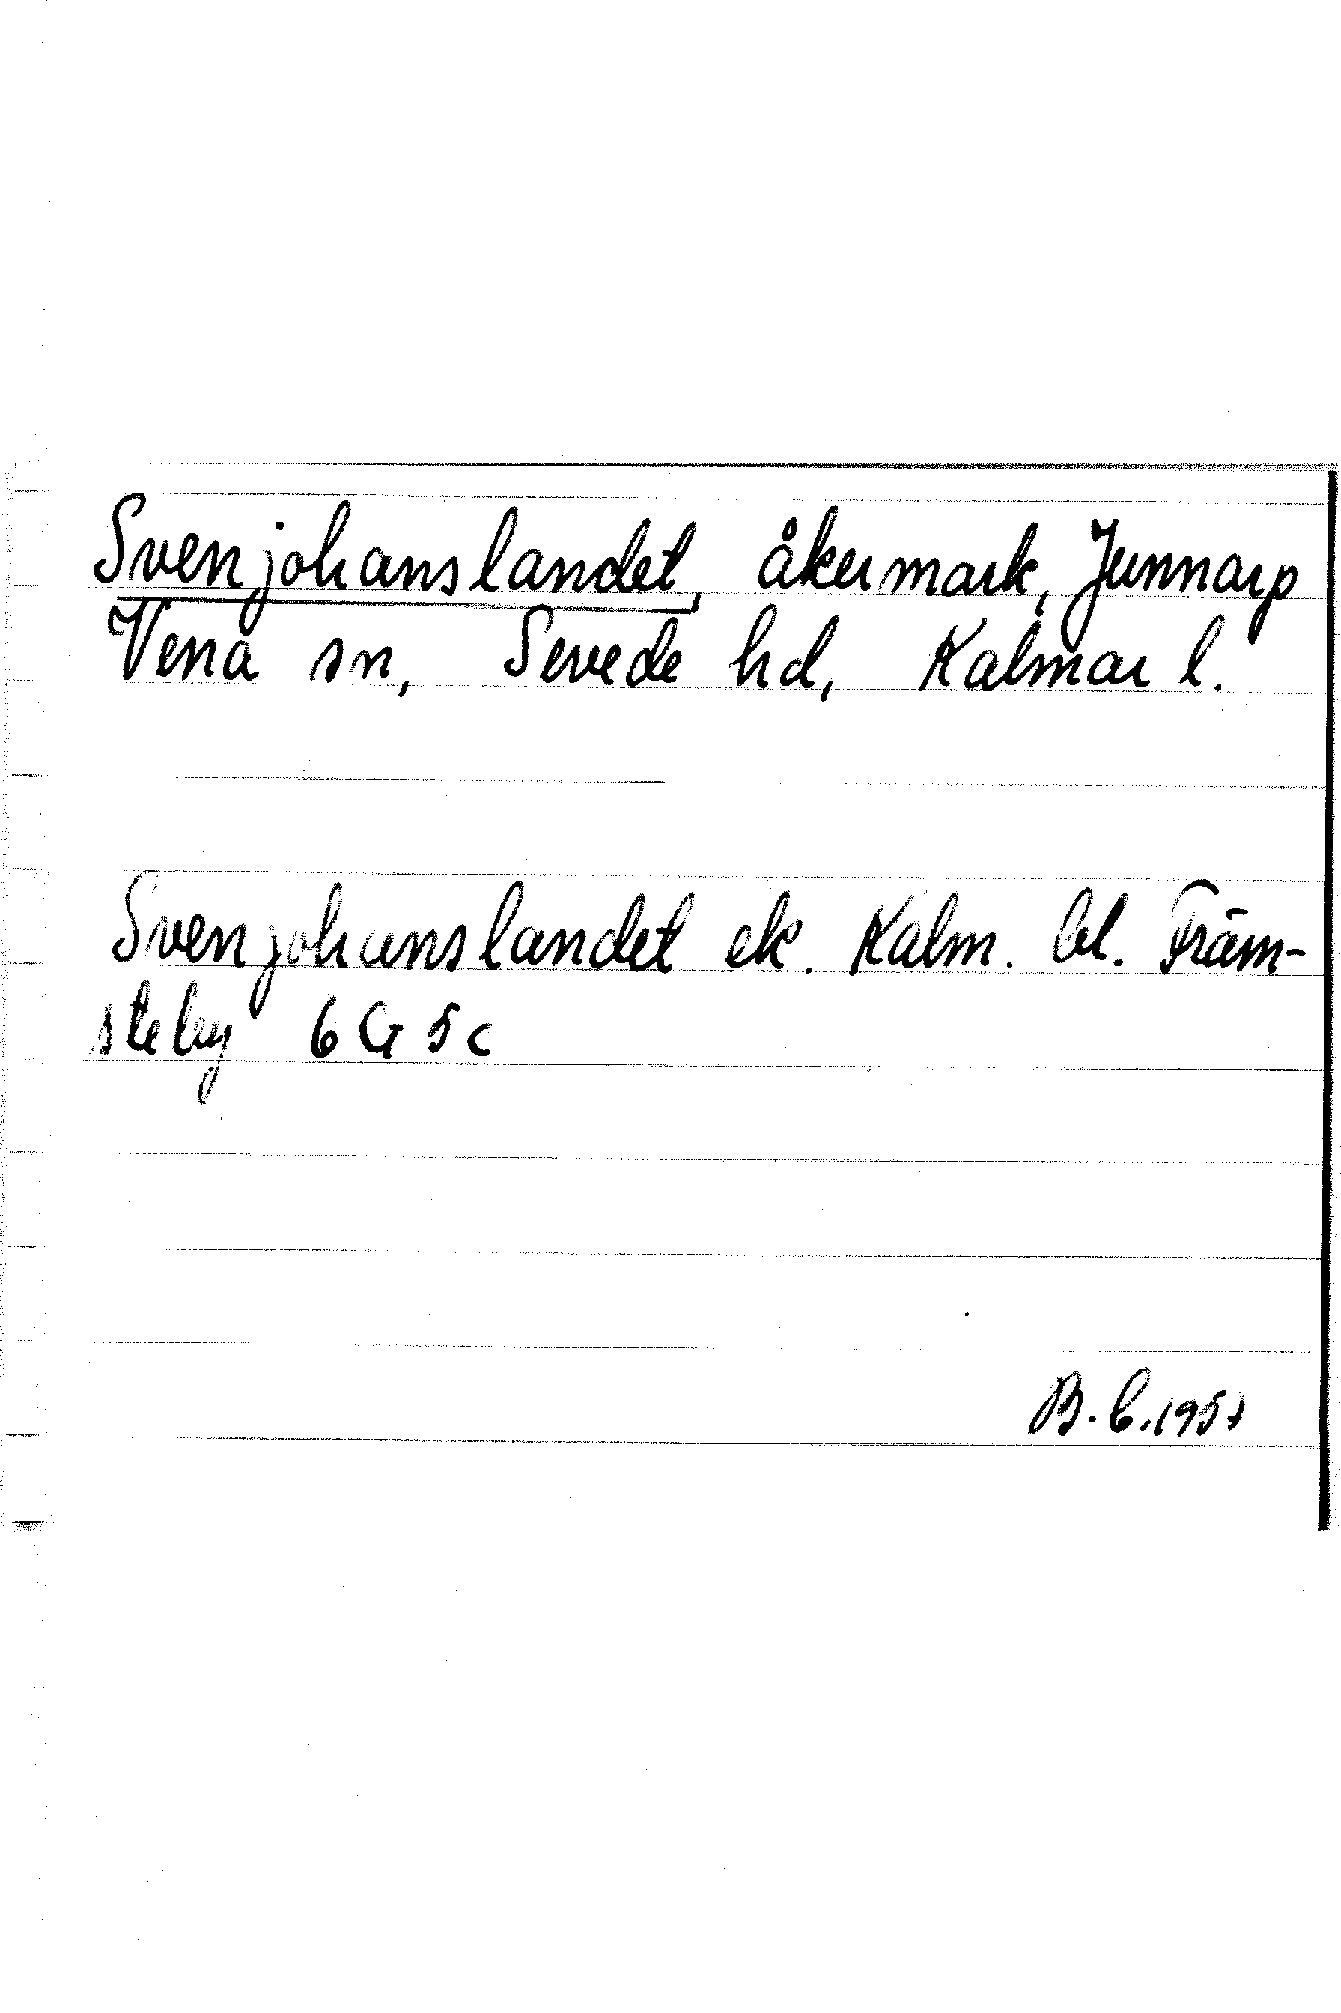 Svenjohanslandet, åkermark, Junnarp
Vena sn, Sevede hd, Kalmar l.
Svenjohanslandet ek. Kalm. bl. Främ-
steby 6G 5c
B. C. 1957